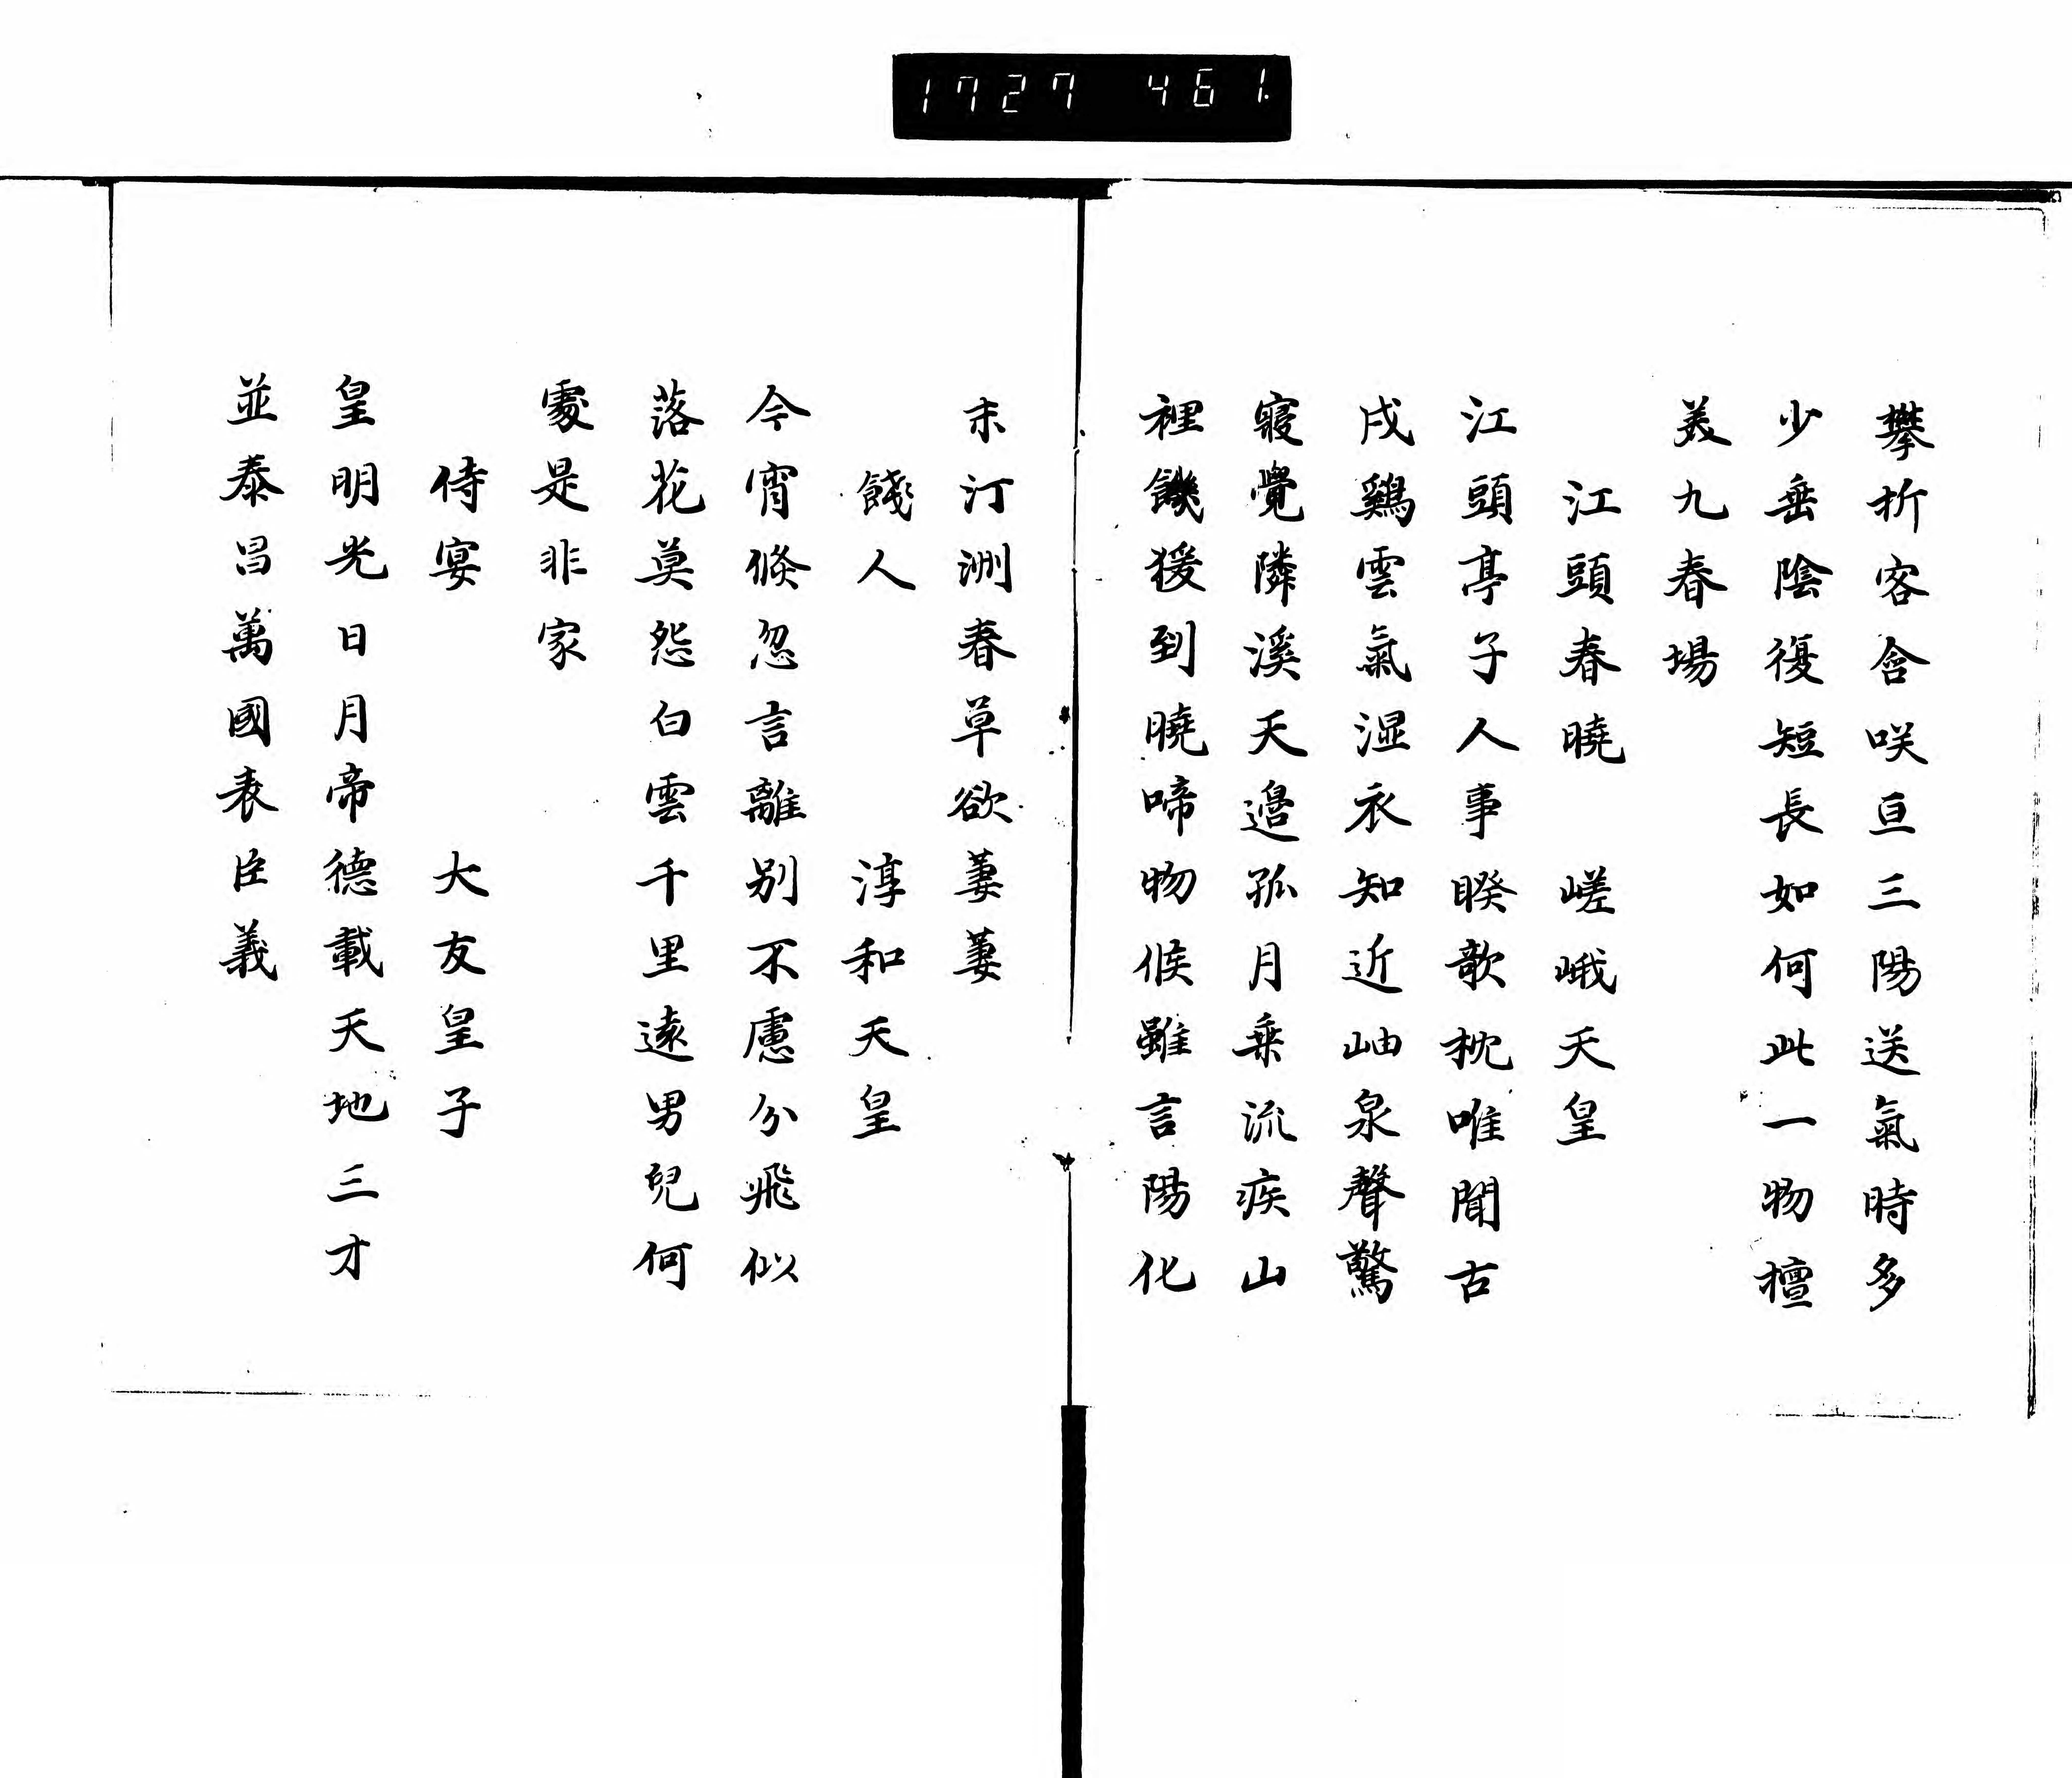 1727 461
攀折容含咲亘三陽送氣時多
少垂陰復短長如何此一物擅
美九春場
江頭春曉 嵯峨天皇
江頭亭子人事睽欹枕唯聞古
戍鷄雲氣湿衣知近岫泉聲驚
寢覺隣溪天邉孤月乗流疾山
裡饑猨到曉啼物候雖言陽化
未汀洲春草欲萋萋
餞人 淳和天皇
今宵倏忽言離別不慮分飛似
落花莫怨白雲千里遠男兒何
處是非家
侍宴 大友皇子
皇明光日月帝德載天地三才
並泰昌萬國表臣義